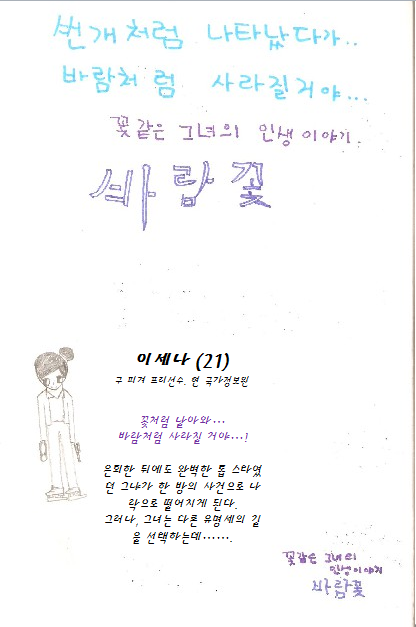 번개처럼 나타났다가..
바람처럼 사라질거야...
꽃같은 그녀의 인생이야기.
바람꽃
이세나 (21)
구 피겨 프리선수. 현 국가정보원
꽃처럼 날아와...
바람처럼 사라질 거야...!
은퇴한 뒤에도 완벽한 톱 스타였
던 그녀가 한 방의 사건으로 나
락으로 떨어지게 된다.
그러나, 그녀는 다른 유명세의 길
을 선택하는데…….
꽃같은 그녀의
인생이야기
바람꽃